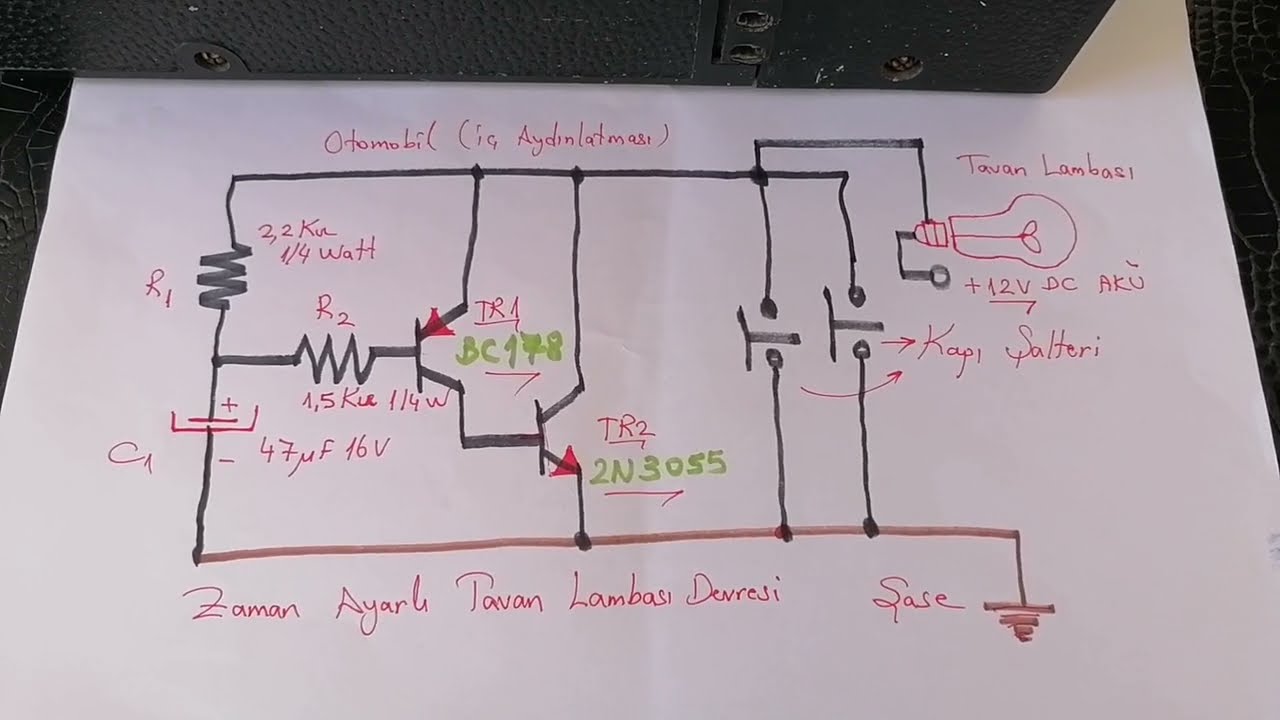 Otomobil (iç Aydınlatması)
Tavan Lambası
2,2 KΩ
1/4 Watt
R1
R2
TR1
BC178
+12V DC AKÜ
Kapı Şalteri
1,5 KΩ 1/4 W
+
C1
-
47μF 16V
TR2
2N3055
Zaman Ayarlı Tavan Lambası Devresi
Şase